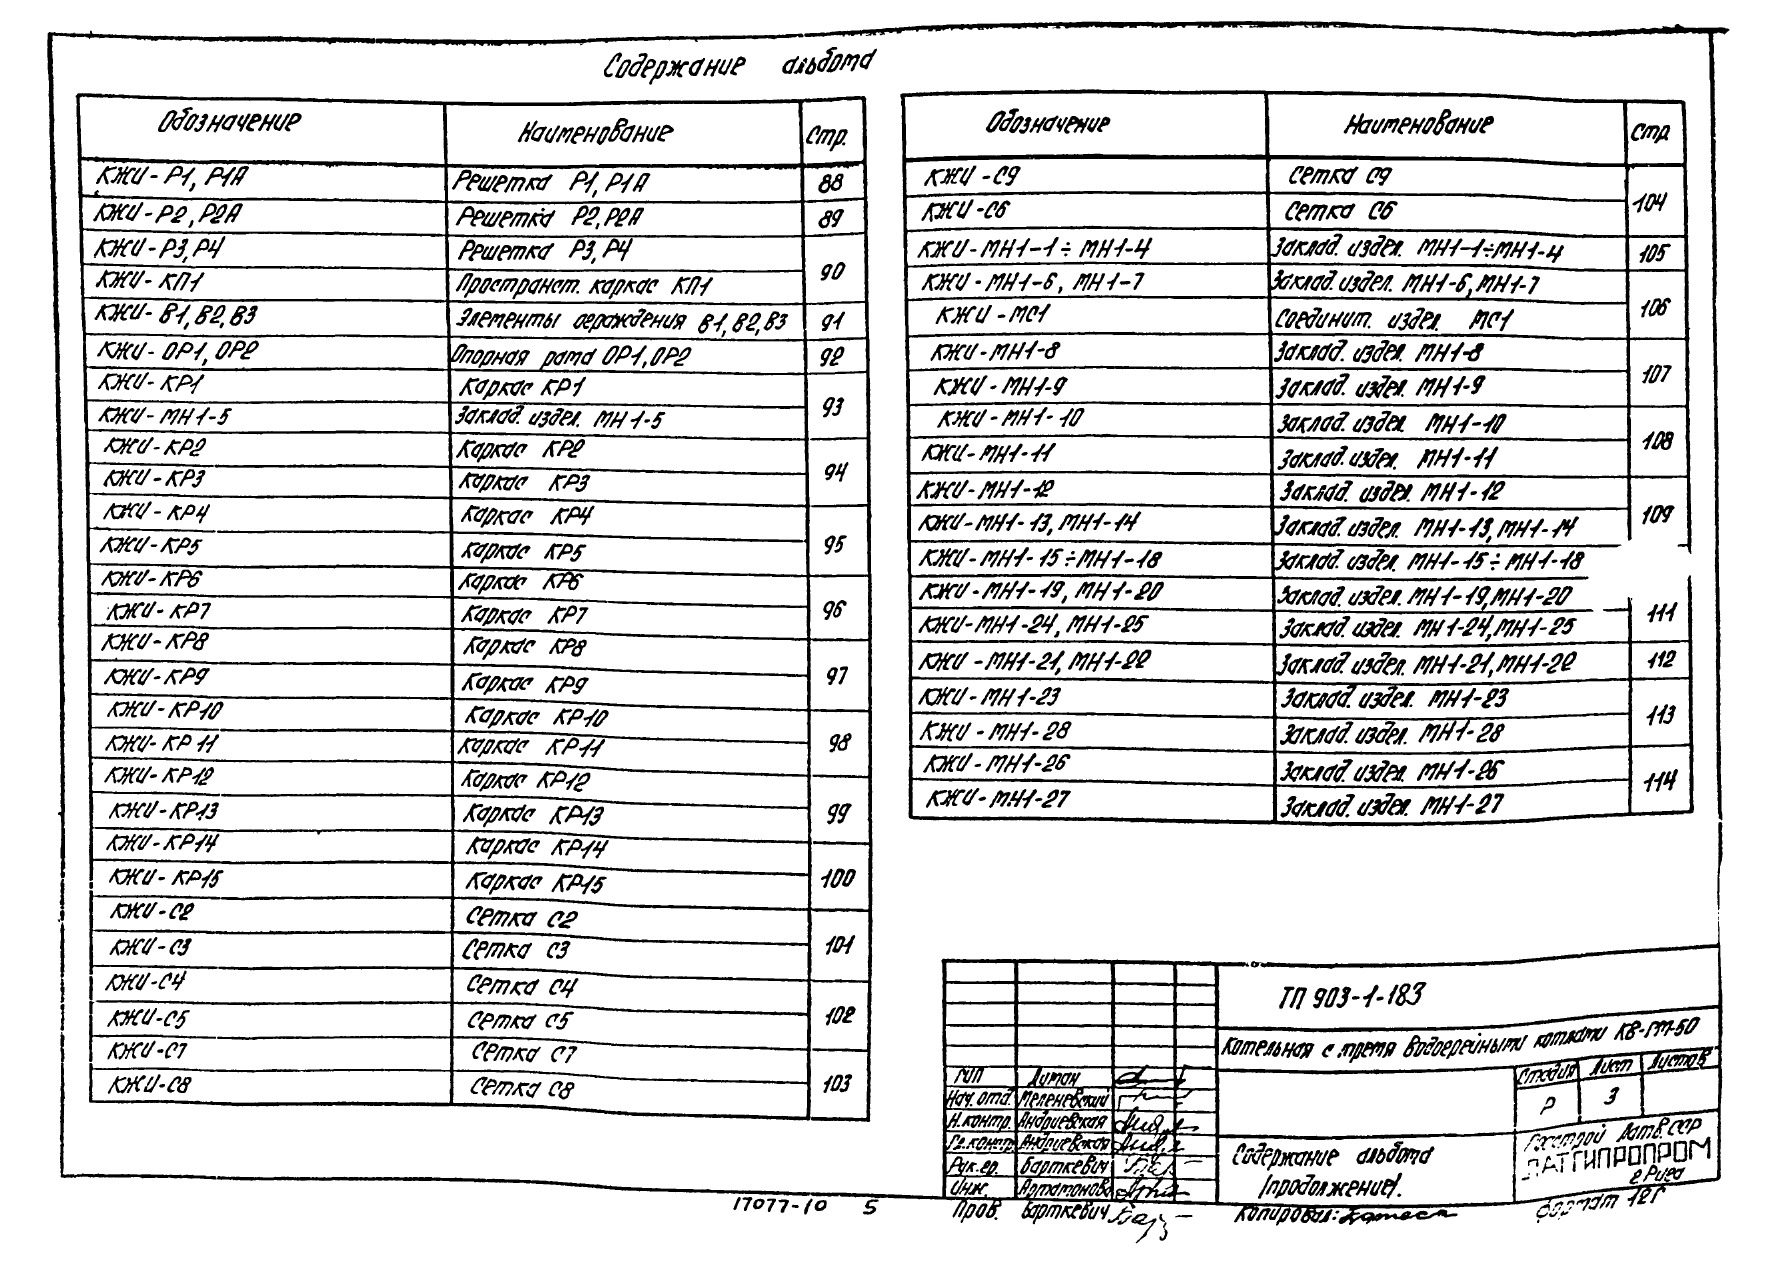 Содержание альбома
Обозначение Наименование Стр.
КЖИ-Р1, Р1А Решетка Р1, Р1А 88
КЖИ-Р2, Р2А Решетка Р2, Р2А 89
КЖИ-Р3, Р4 Решетка Р3, Р4 90
КЖИ-КП1 Пространст. каркас КП1
КЖИ-В1, В2, В3 Элементы ограждения В1, В2, В3 91
КЖИ-ОР1, ОР2 Опорная рама ОР1, ОР2 92
КЖИ-КР1 Каркас КР1 93
КЖИ-МН1-5 Заклад. издел. МН1-5
КЖИ-КР2 Каркас КР2 94
КЖИ-КР3 Каркас КР3
КЖИ-КР4 Каркас КР4 95
КЖИ-КР5 Каркас КР5
КЖИ-КР6 Каркас КР6 96
КЖИ-КР7 Каркас КР7
КЖИ-КР8 Каркас КР8 97
КЖИ-КР9 Каркас КР9
КЖИ-КР10 Каркас КР10 98
КЖИ-КР11 Каркас КР11
КЖИ-КР12 Каркас КР12 99
КЖИ-КР13 Каркас КР13
КЖИ-КР14 Каркас КР14 100
КЖИ-КР15 Каркас КР15
КЖИ-С2 Сетка С2 101
КЖИ-С3 Сетка С3
КЖИ-С4 Сетка С4 102
КЖИ-С5 Сетка С5
КЖИ-С7 Сетка С7 103
КЖИ-С8 Сетка С8
Обозначение Наименование Стр
КЖИ-С9 Сетка С9 104
КЖИ-С6 Сетка С6
КЖИ-МН1-1÷МН1-4 Заклад. издел. МН1-1÷МН1-4 105
КЖИ-МН1-6, МН1-7 Заклад. издел. МН1-6, МН1-7 106
КЖИ-МС1 Соединит. издел. МС1
КЖИ-МН1-8 Заклад. издел. МН1-8 107
КЖИ-МН1-9 Заклад. издел. МН1-9
КЖИ-МН1-10 Заклад. издел. МН1-10 108
КЖИ-МН1-11 Заклад. издел. МН1-11
КЖИ-МН1-12 Заклад. издел. МН1-12 109
КЖИ-МН1-13, МН1-14 Заклад. издел. МН1-13, МН1-14
КЖИ-МН1-15÷МН1-18 Заклад. издел. МН1-15÷МН1-18
КЖИ-МН1-19, МН1-20 Заклад. издел. МН1-19, МН1-20 111
КЖИ-МН1-24, МН1-25 Заклад. издел. МН1-24, МН1-25
КЖИ-МН1-21, МН1-22 Заклад. издел. МН1-21, МН1-22 112
КЖИ-МН1-23 Заклад. издел. МН1-23 113
КЖИ-МН1-28 Заклад. издел. МН1-28
КЖИ-МН1-26 Заклад. издел. МН1-26 114
КЖИ-МН1-27 Заклад. издел. МН1-27
ТП 903-1-183
Котельная с тремя водогрейными котлами КВ-ГМ-50
Стадия Лист Листов
Р 3
ГИП Диман
Нач. отд. Меленевский
Н. контр. Андриевская
Гл. констр. Андриевская
Рук. гр. Барткевич
Инж. Артамонова
Пров. Барткевич
Содержание альбома
/продолжение/.
Госстрой Латв. ССР
ЛАТГИПРОПРОМ
г. Рига
Копировал:
Формат 12Г
17077-10 5